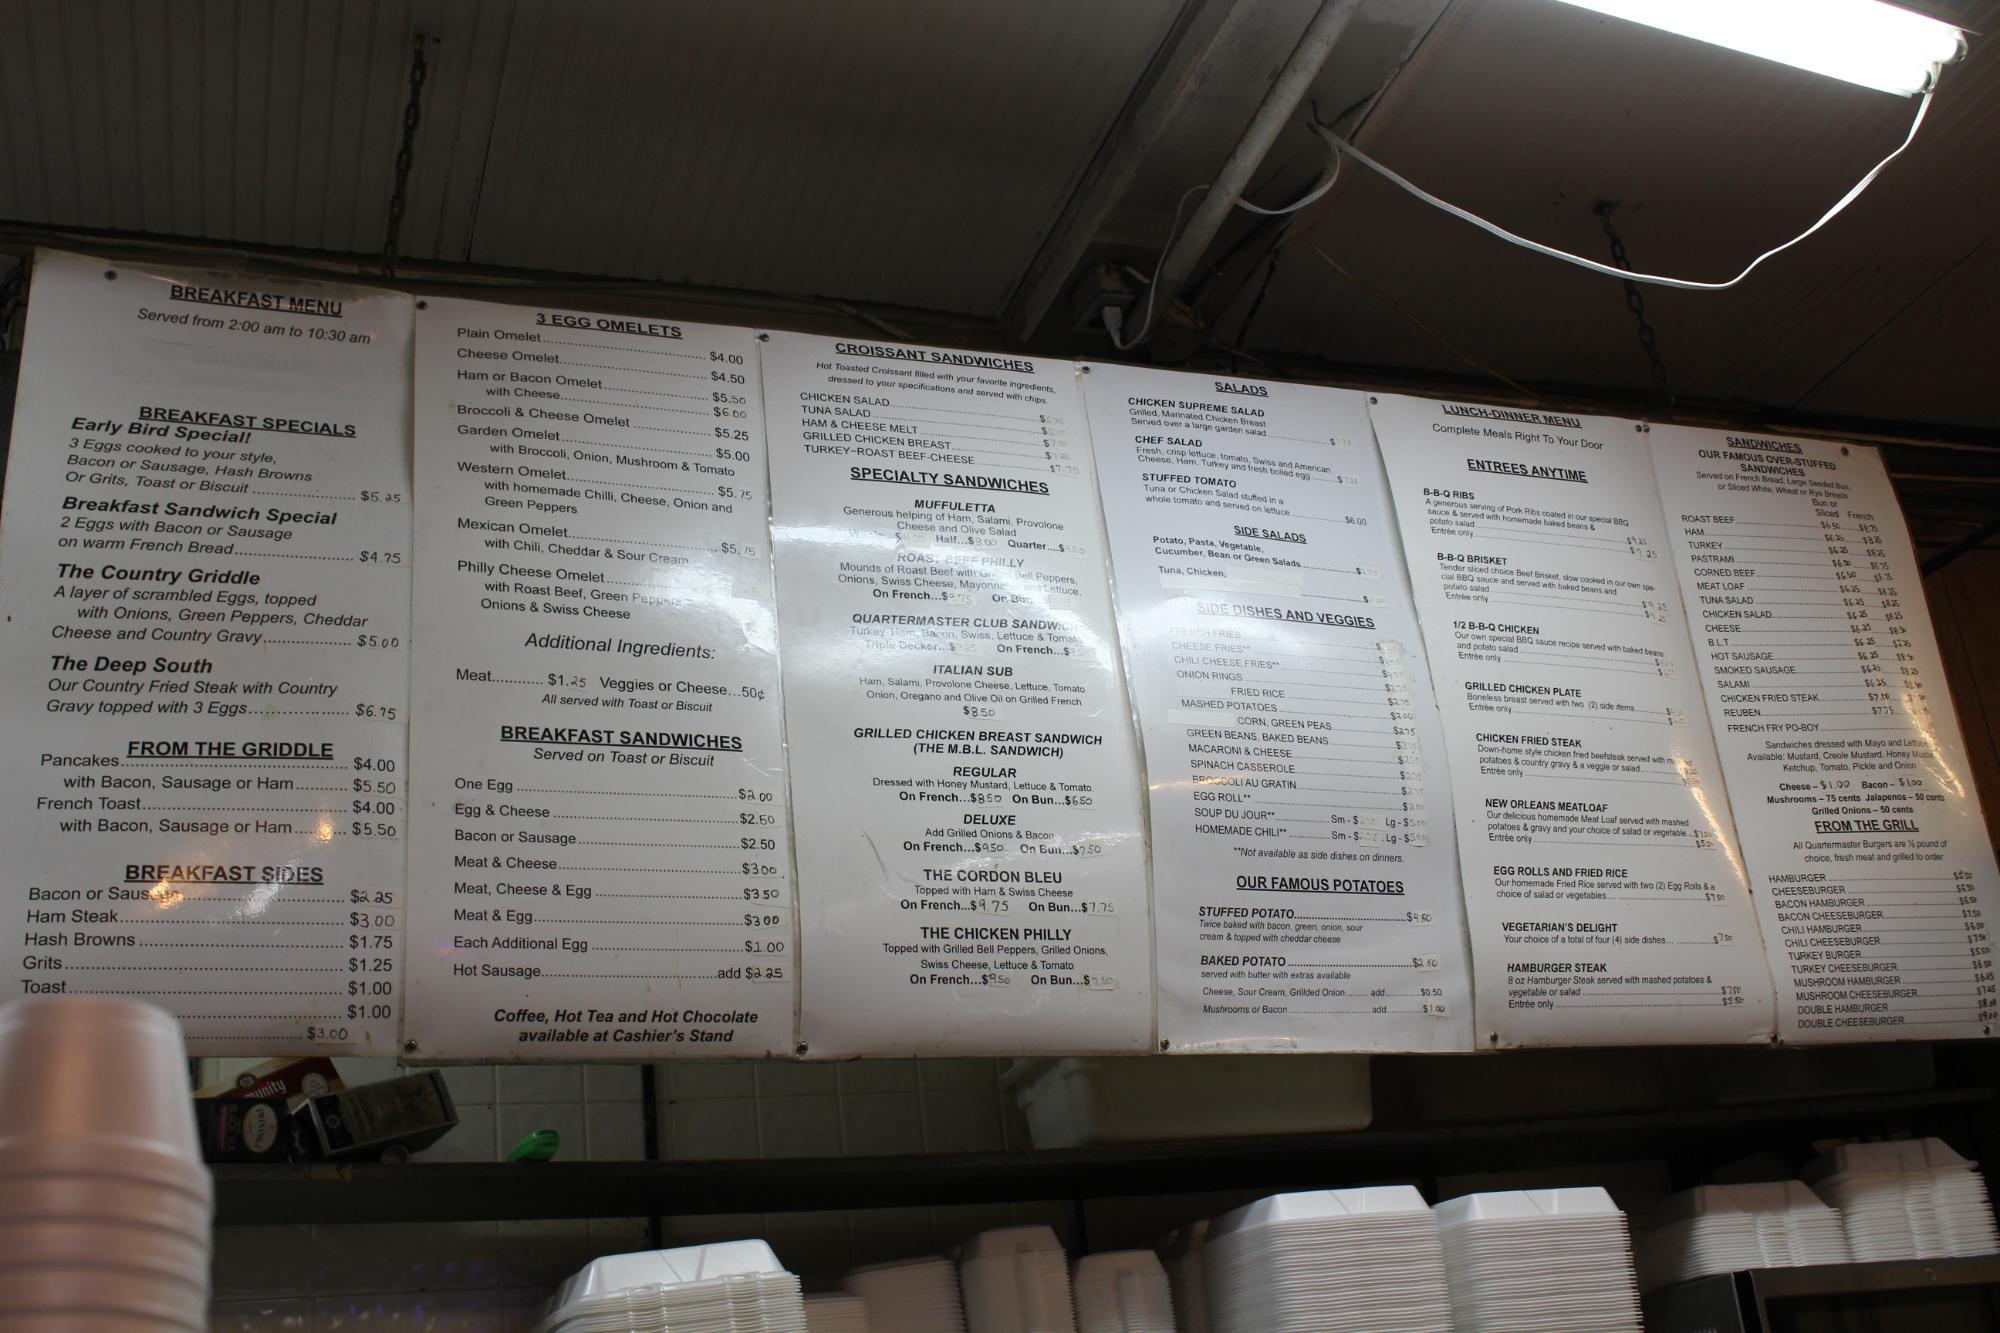 BREAKFAST MENU
Served from 2:00 am to 10:30 am
BREAKFAST SPECIALS
Early Bird Special!
3 Eggs cooked to your style,
Bacon or Sausage, Hash Browns
Or Grits, Toast or Biscuit ........ $5.25
Breakfast Sandwich Special
2 Eggs with Bacon or Sausage
on warm French Bread........ $4.75
The Country Griddle
A layer of scrambled Eggs, topped
with Onions, Green Peppers, Cheddar
Cheese and Country Gravy........ $5.00
The Deep South
Our Country Fried Steak with Country
Gravy topped with 3 Eggs........ $6.75
FROM THE GRIDDLE
Pancakes........ $4.00
with Bacon, Sausage or Ham........ $5.50
French Toast........ $4.00
with Bacon, Sausage or Ham........ $5.50
BREAKFAST SIDES
Bacon or Sausage $2.25
Ham Steak........ $3.00
Hash Browns ........ $1.75
Grits........ $1.25
Toast........ $1.00
$1.00
$3.00
3 EGG OMELETS
Plain Omelet........ $4.00
Cheese Omelet........ $4.50
Ham or Bacon Omelet........ $5.50
with Cheese........ $6.00
Broccoli & Cheese Omelet ........ $5.25
Garden Omelet........ $5.00
with Broccoli, Onion, Mushroom & Tomato
Western Omelet........ $5.75
with homemade Chilli, Cheese, Onion and
Green Peppers
Mexican Omelet........ $5.75
with Chili, Cheddar & Sour Cream
Philly Cheese Omelet
with Roast Beef, Green Peppers,
Onions & Swiss Cheese
Additional Ingredients:
Meat........ $1.25 Veggies or Cheese...50¢
All served with Toast or Biscuit
BREAKFAST SANDWICHES
Served on Toast or Biscuit
One Egg ........ $2.00
Egg & Cheese ........ $2.50
Bacon or Sausage ........ $2.50
Meat & Cheese ........ $3.00
Meat, Cheese & Egg ........ $3.50
Meat & Egg ........ $3.00
Each Additional Egg ........ $1.00
Hot Sausage........add $2.25
Coffee, Hot Tea and Hot Chocolate
available at Cashier's Stand
CROISSANT SANDWICHES
Hot Toasted Croissant filled with your favorite ingredients,
dressed to your specifications and served with chips.
CHICKEN SALAD
TUNA SALAD
HAM & CHEESE MELT
GRILLED CHICKEN BREAST
TURKEY~ROAST BEEF-CHEESE ........ $7.75
SPECIALTY SANDWICHES
MUFFULETTA
Generous helping of Ham, Salami, Provolone
Cheese and Olive Salad
Half... Quarter....
ROAST BEEF PHILLY
Mounds of Roast Beef with Grilled Bell Peppers,
Onions, Swiss Cheese, Mayonnaise and Lettuce.
On French...$9.75 On Bun
QUARTERMASTER CLUB SANDWICH
Turkey, Ham, Bacon, Swiss, Lettuce & Tomato
Triple Decker... On French...
ITALIAN SUB
Ham, Salami, Provolone Cheese, Lettuce, Tomato
Onion, Oregano and Olive Oil on Grilled French
$8.50
GRILLED CHICKEN BREAST SANDWICH
(THE M.B.L. SANDWICH)
REGULAR
Dressed with Honey Mustard, Lettuce & Tomato.
On French...$8.50 On Bun...$6.50
DELUXE
Add Grilled Onions & Bacon
On French...$9.50 On Bun...$7.50
THE CORDON BLEU
Topped with Ham & Swiss Cheese
On French...$9.75 On Bun...$7.75
THE CHICKEN PHILLY
Topped with Grilled Bell Peppers, Grilled Onions,
Swiss Cheese, Lettuce & Tomato
On French...$9.50 On Bun...$7.50
SALADS
CHICKEN SUPREME SALAD
Grilled, Marinated Chicken Breast
Served over a large garden salad
CHEF SALAD
Fresh, crisp lettuce, tomato, Swiss and American
Cheese, Ham, Turkey and fresh boiled egg
STUFFED TOMATO
Tuna or Chicken Salad stuffed in a
whole tomato and served on lettuce........ $6.00
SIDE SALADS
Potato, Pasta, Vegetable,
Cucumber, Bean or Green Salads
Tuna, Chicken,
SIDE DISHES AND VEGGIES
FRENCH FRIES
CHEESE FRIES**
CHILI CHEESE FRIES**
ONION RINGS
FRIED RICE
MASHED POTATOES
CORN, GREEN PEAS
GREEN BEANS, BAKED BEANS
MACARONI & CHEESE
SPINACH CASSEROLE
BROCCOLI AU GRATIN
EGG ROLL**
SOUP DU JOUR** Sm - Lg -
HOMEMADE CHILI** Sm - Lg -
**Not available as side dishes on dinners.
OUR FAMOUS POTATOES
STUFFED POTATO........ $4.50
Twice baked with bacon, green, onion, sour
cream & topped with cheddar cheese
BAKED POTATO ........ $2.50
served with butter with extras available
Cheese, Sour Cream, Grillded Onion........ add........ $0.50
Mushrooms or Bacon ........ add........ $1.00
LUNCH-DINNER MENU
Complete Meals Right To Your Door
ENTREES ANYTIME
B-B-Q RIBS
A generous serving of Pork Ribs coated in our special BBQ
sauce & served with homemade baked beans &
potato salad ........ $9.25
Entrée only ........ $7.25
B-B-Q BRISKET
Tender sliced choice Beef Brisket, slow cooked in our own spe-
cial BBQ sauce and served with baked beans and
potato salad ........ $9.25
Entrée only
1/2 B-B-Q CHICKEN
Our own special BBQ sauce recipe served with baked beans
and potato salad
Entrée only
GRILLED CHICKEN PLATE
Boneless breast served with two (2) side items
Entrée only
CHICKEN FRIED STEAK
Down-home style chicken fried beefsteak served with mashed
potatoes & country gravy & a veggie or salad
Entrée only
NEW ORLEANS MEATLOAF
Our delicious homemade Meat Loaf served with mashed
potatoes & gravy and your choice of salad or vegetable...$7.50
Entrée only ........ $5.50
EGG ROLLS AND FRIED RICE
Our homemade Fried Rice served with two (2) Egg Rolls & a
choice of salad or vegetables........ $7.50
VEGETARIAN'S DELIGHT
Your choice of a total of four (4) side dishes........ $7.50
HAMBURGER STEAK
8 oz Hamburger Steak served with mashed potatoes &
vegetable or salad ........ $7.50
Entrée only ........ $5.50
SANDWICHES
OUR FAMOUS OVER-STUFFED
SANDWICHES
Served on French Bread, Large Seeded Bun,
or Sliced White, Wheat or Rye Breads
Bun or
Sliced French
ROAST BEEF $6.50 $8.75
HAM $6.25 $8.25
TURKEY $6.25 $8.25
PASTRAMI $6.50
CORNED BEEF $6.50
MEAT LOAF $6.25 $8.25
TUNA SALAD $6.25 $8.25
CHICKEN SALAD $6.25 $8.25
CHEESE $6.25
B.L.T $6.25
HOT SAUSAGE $6.25
SMOKED SAUSAGE $6.25
SALAMI $6.25
CHICKEN FRIED STEAK
REUBEN $7.75
FRENCH FRY PO-BOY
Sandwiches dressed with Mayo and Lettuce
Available: Mustard, Creole Mustard, Honey Mustard
Ketchup, Tomato, Pickle and Onion
Cheese – $1.00 Bacon – $1.00
Mushrooms – 75 cents Jalapenos – 50 cents
Grilled Onions – 50 cents
FROM THE GRILL
All Quartermaster Burgers are ⅓ pound of
choice, fresh meat and grilled to order
HAMBURGER $5.50
CHEESEBURGER $6.50
BACON HAMBURGER $6.50
BACON CHEESEBURGER $7.50
CHILI HAMBURGER $6.50
CHILI CHEESEBURGER $7.50
TURKEY BURGER $5.50
TURKEY CHEESEBURGER $6.50
MUSHROOM HAMBURGER
MUSHROOM CHEESEBURGER $7.25
DOUBLE HAMBURGER $8.00
DOUBLE CHEESEBURGER $9.00
TWININGS